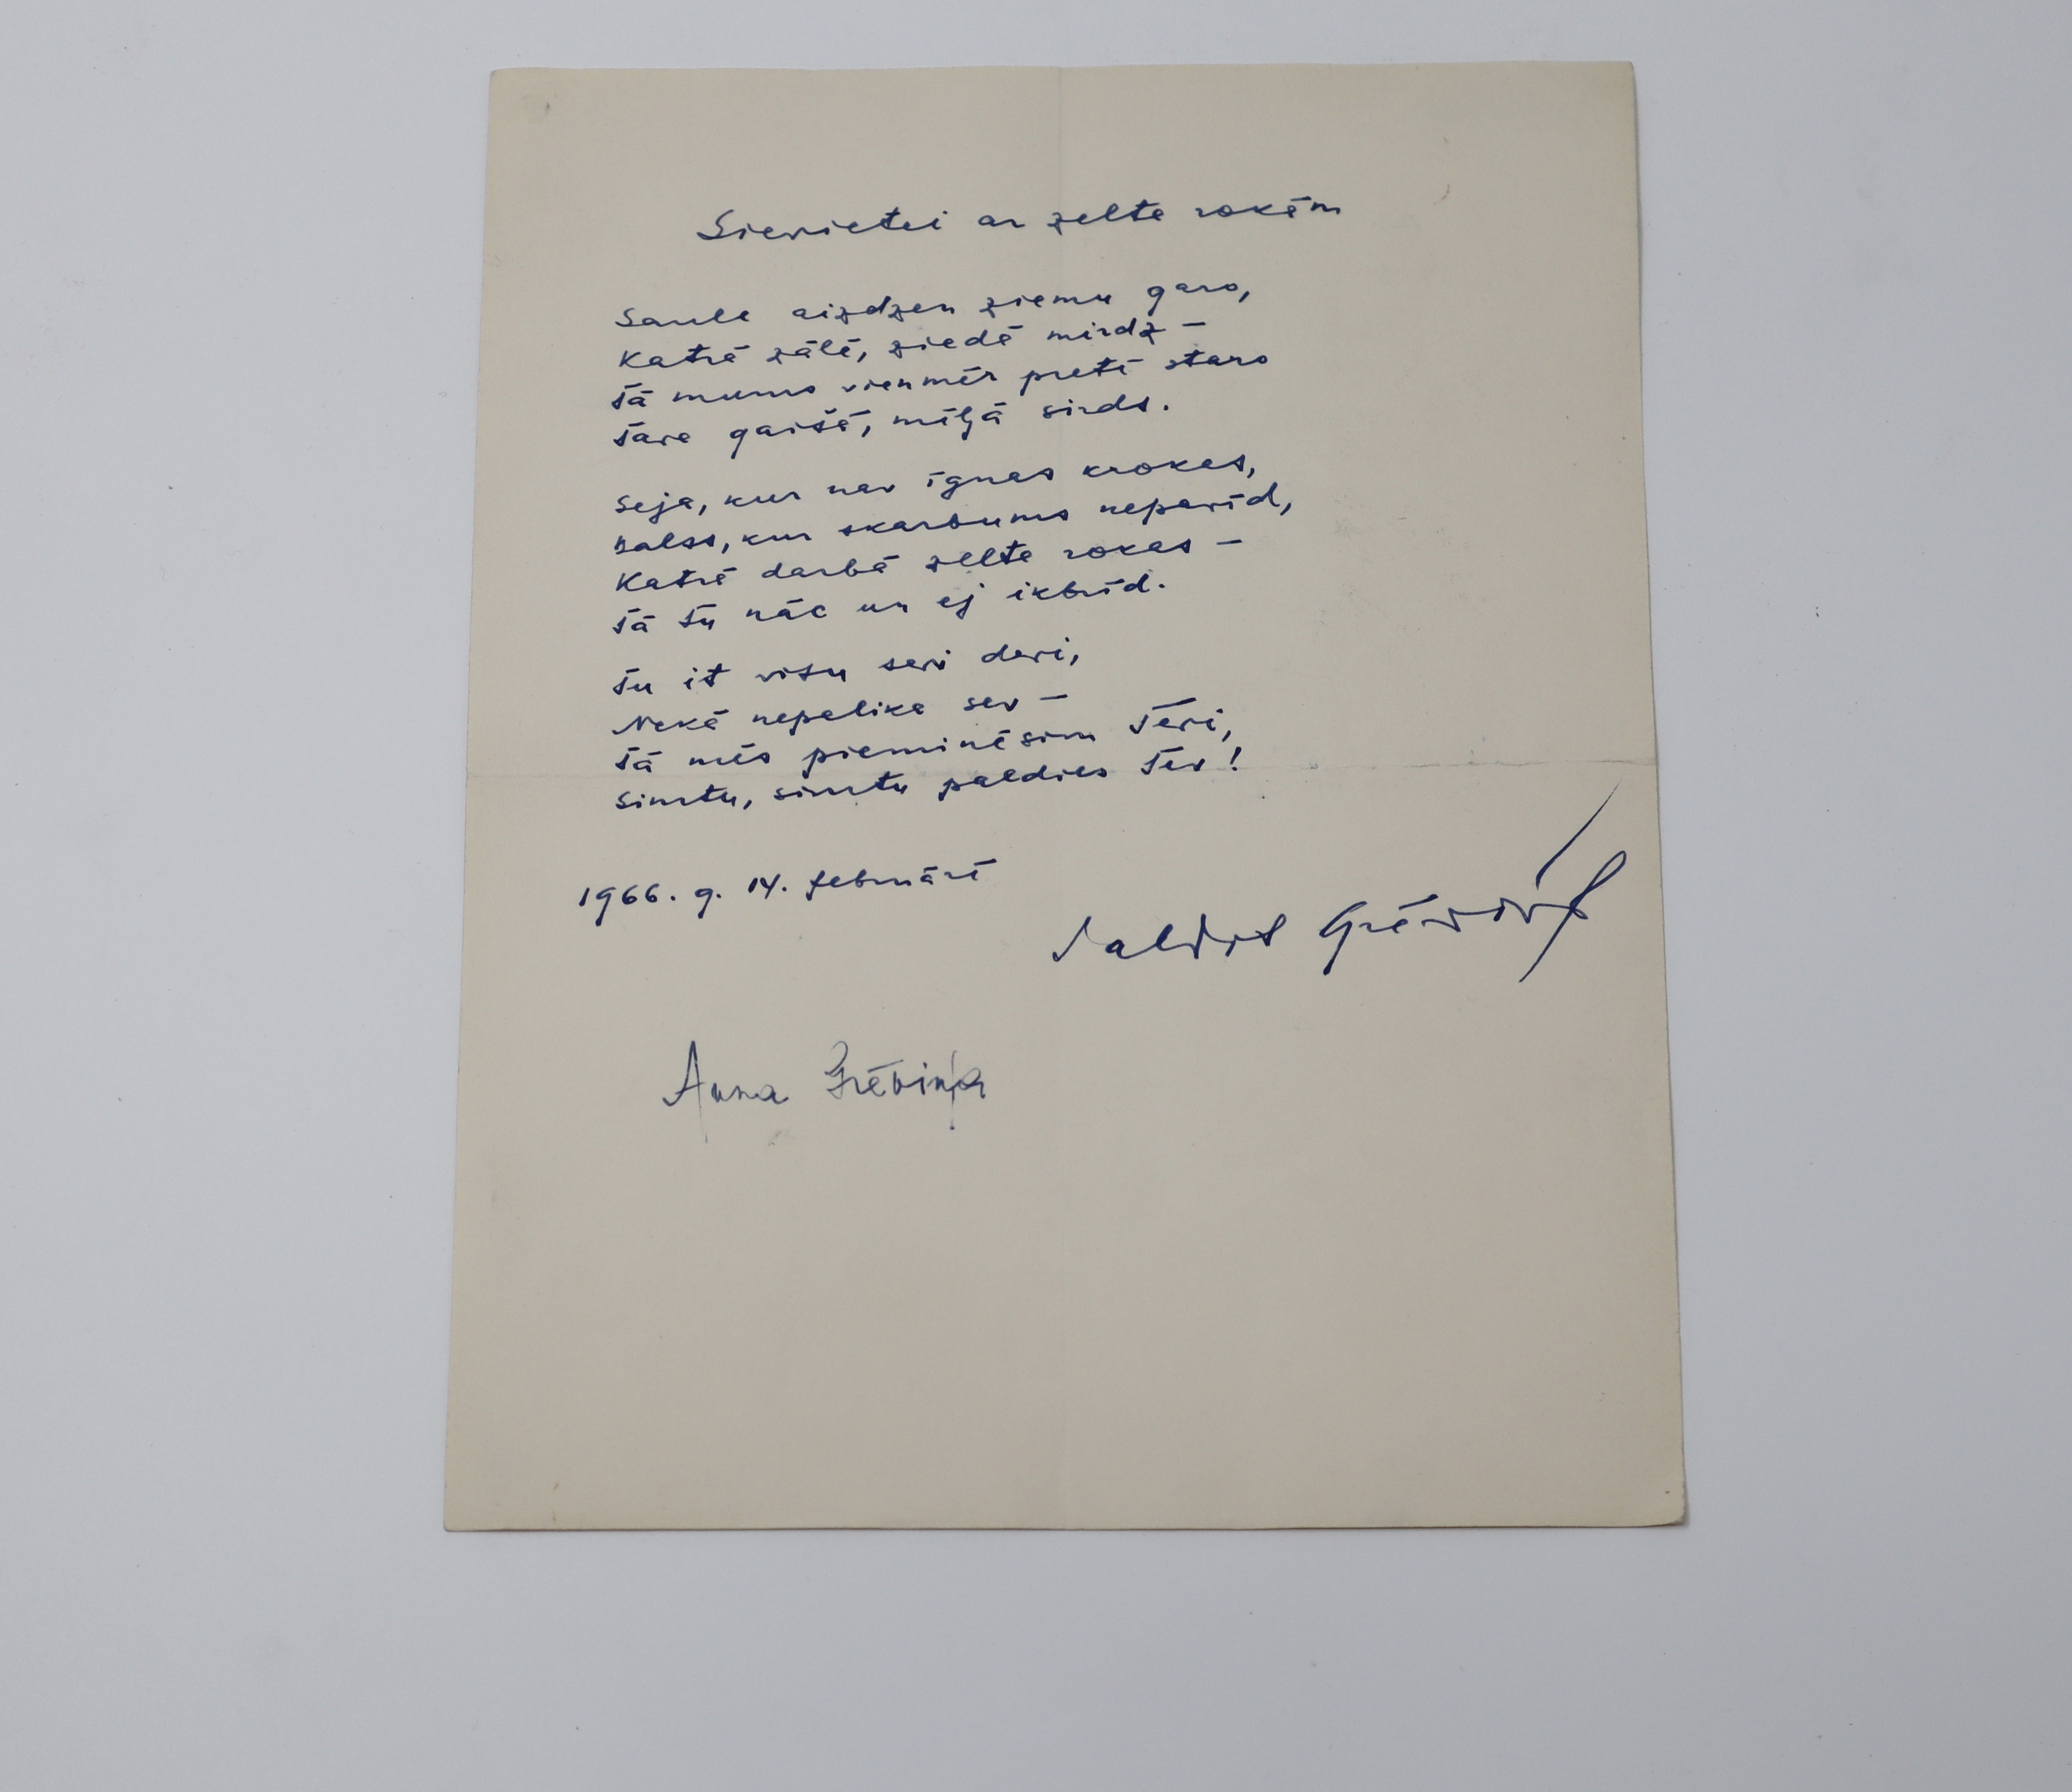 Sievietei ar zelta rokām
Saule aizdzen ziemu garo,
Katrā zālē, ziedā mirdz –
Tā mums vienmēr pretī staro
Tava gaišā, mīļā sirds.
Seja, kur nav īgnas krokas,
Balss, kur skarbums nepavīd,
Katrā darbā zelta rokas –
Tā Tu nāc un ej ikbrīd.
Tu it visu savi devi,
Nekā nepalika sev –
Tā mēs pieminēsim Tevi,
Simtu, simtu paldies Tev!
1966. g. 14. februārī
Valdis Grēviņš
Anna Grēviņa